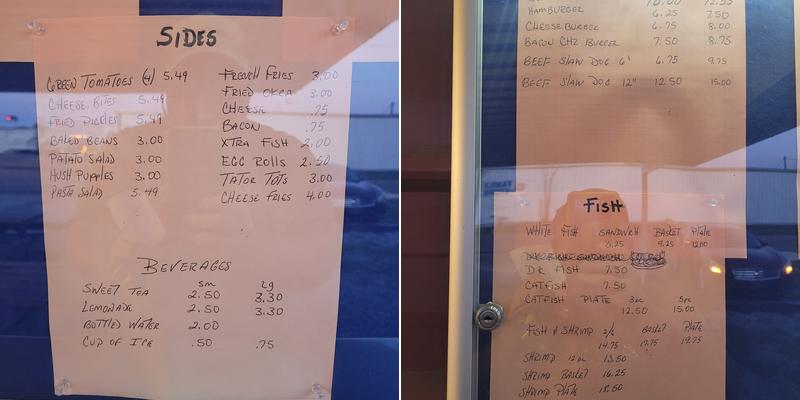 SIDES
GREEN TOMATOES (4) 5.49
CHEESE BITES 5.49
FRIED PICKLES 5.49
BAKED BEANS 3.00
PATATO SALAD 3.00
HUSH PUPPIES 3.00
PASTA SALAD 5.49
FRENCH FRIES 3.00
FRIED OKRA 3.00
CHEESE .75
BACON .75
XTRA FISH 2.00
EGG ROLLS 2.50
TATOR TOTS 3.00
CHEESE FRIES 4.00
BEVERAGES
SM Lg
SWEET TEA 2.50 3.30
LEMONADE 2.50 3.30
BOTTLED WATER 2.00
CUP OF ICE .50 .75
HAMBURGER 6.25 7.50
CHEESE BURGER 6.75 8.00
BACON CHZ BURGER 7.50 8.75
BEEF SLAW DOG 6" 6.75 9.75
BEEF SLAW DOG 12" 12.50 15.00
FISH
WHITE FISH SANDWICH BASKET PLATE
6.25 9.25 12.00
DK FISH 7.50
CATFISH 7.50
CATFISH PLATE 3pc 5pc
12.50 15.00
FISH & SHRIMP BASKET PLATE
14.75 17.75 19.75
SHRIMP 12 13.50
SHRIMP BASKET 16.25
SHRIMP PLATE 18.50